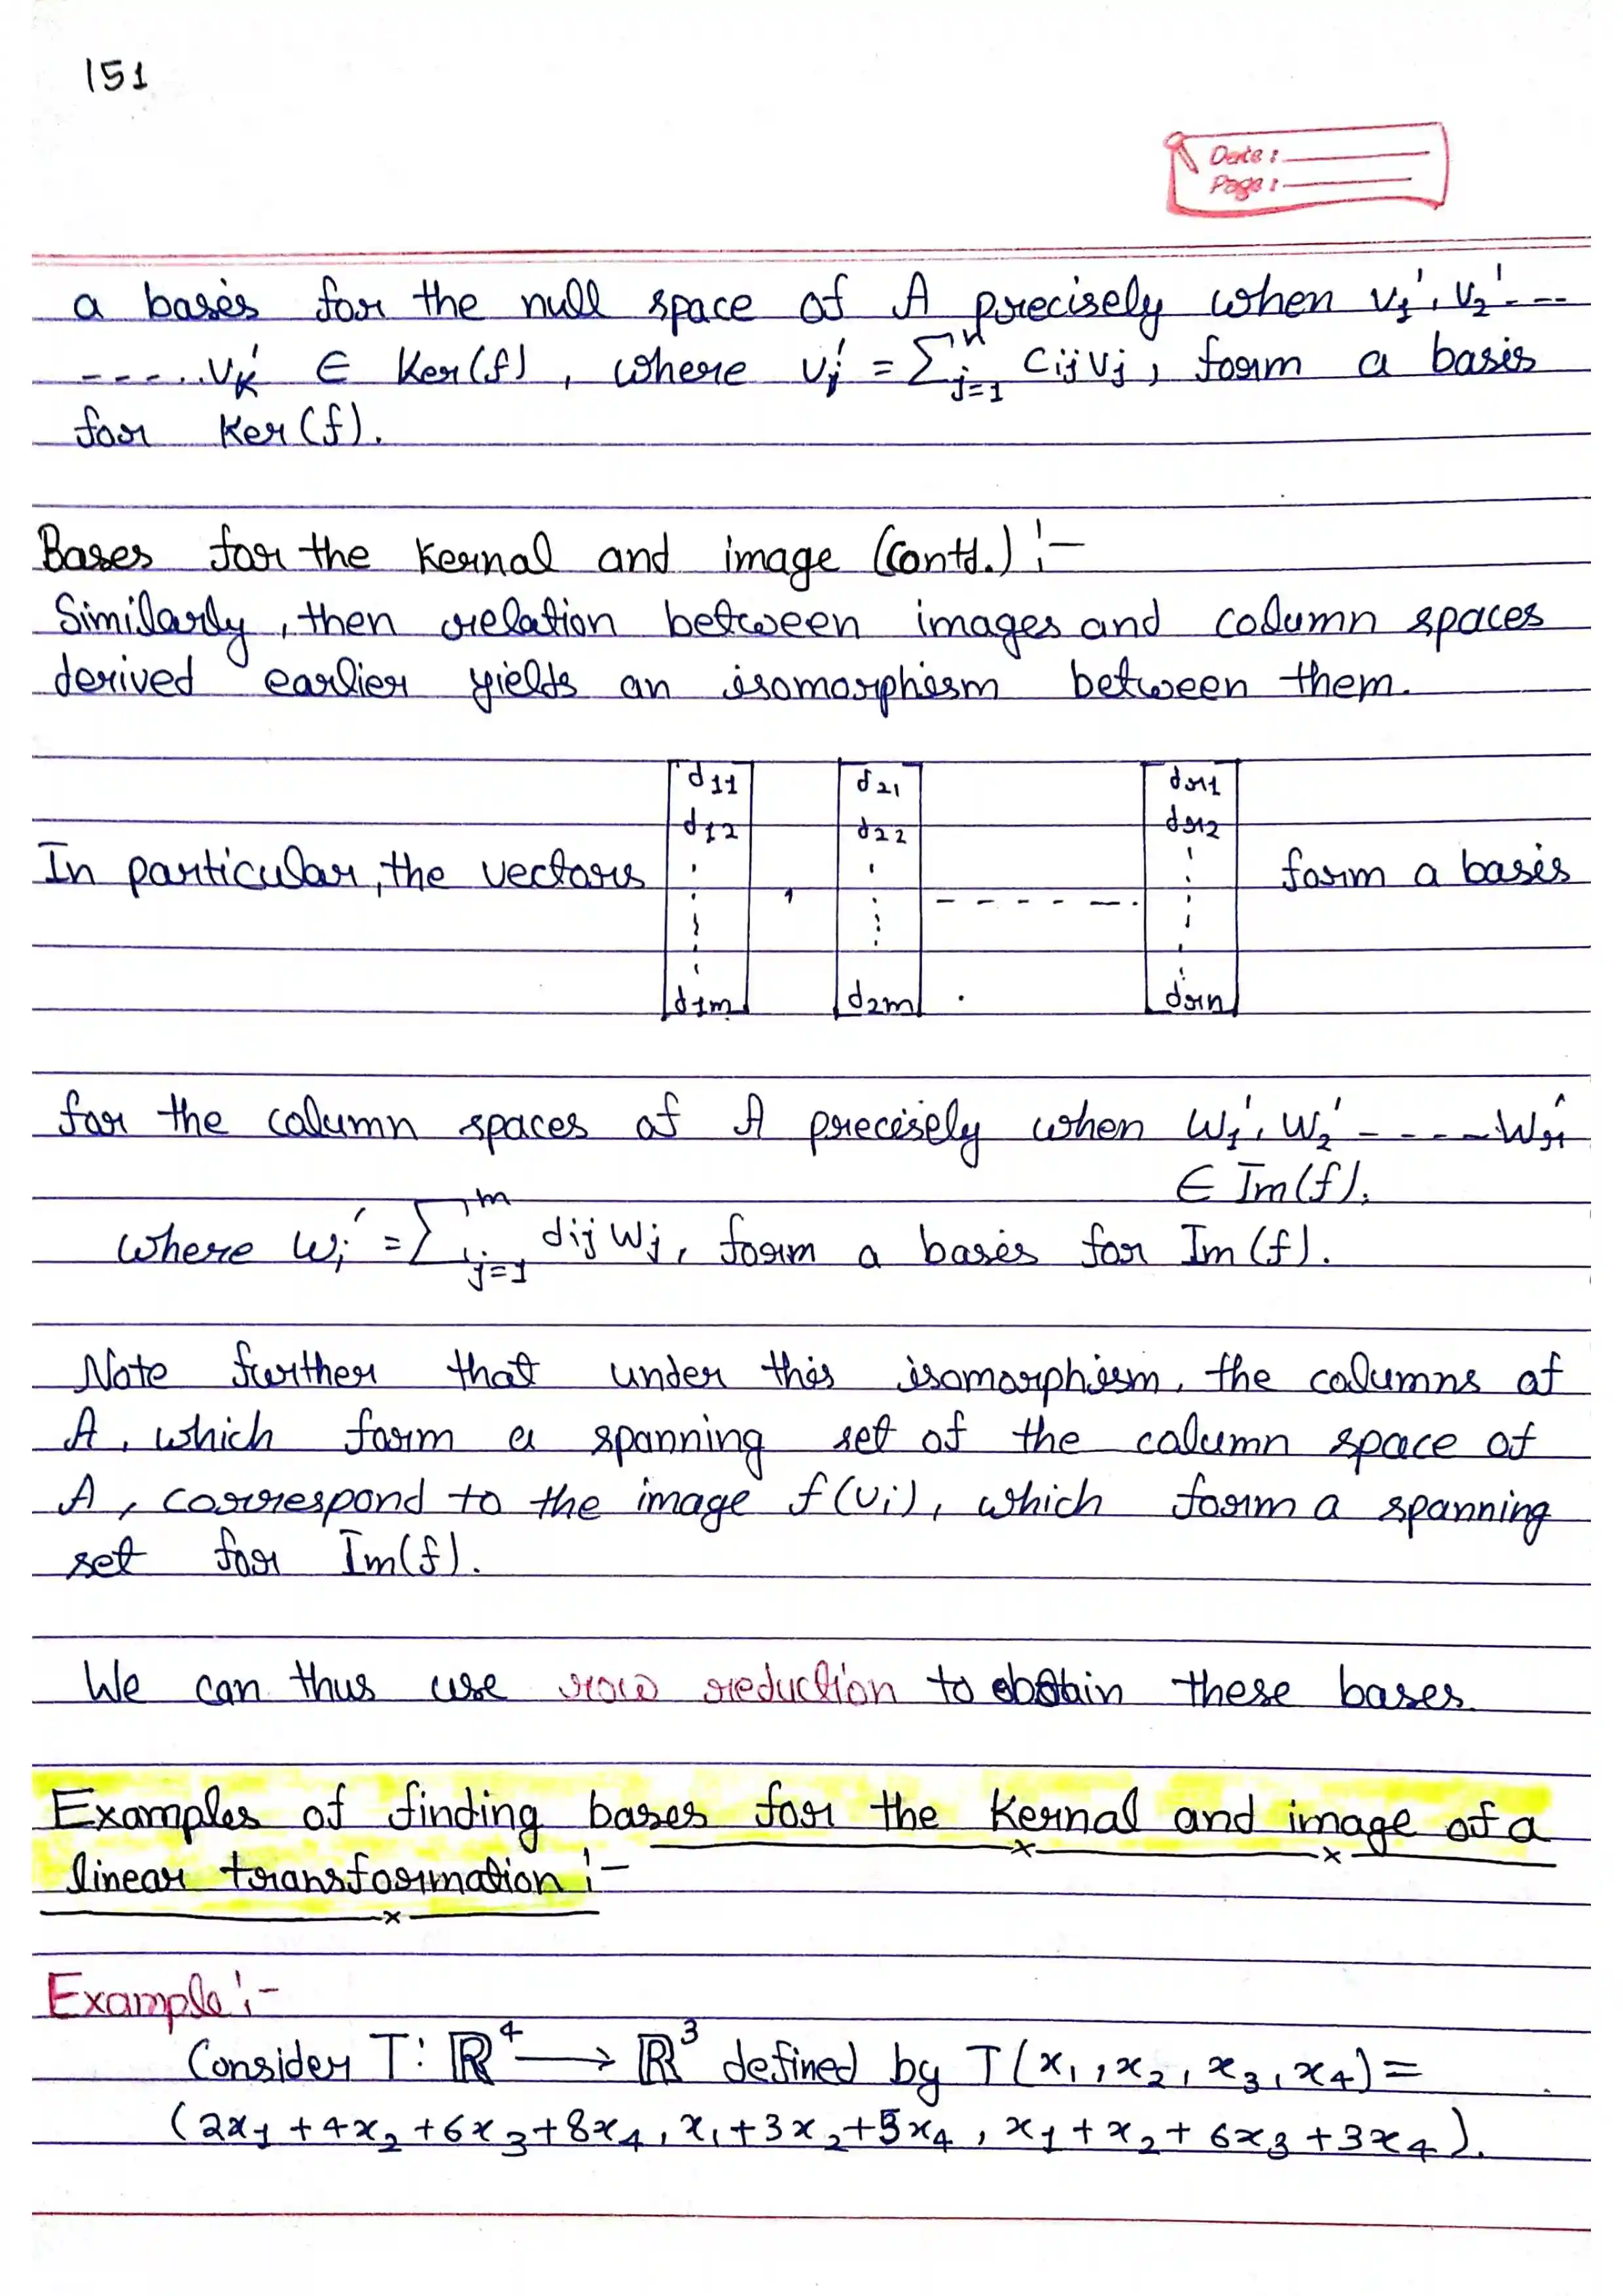 151
Date :
Page :
a basis for the null space of A precisely when v₁', v₂' - --
- - - - ..vₖ' ∈ Ker(f) , where vᵢ' = ∑ⁿⱼ₌₁ Cij vj , form a basis
for Ker(f).
Bases for the Kernal and image (Contd.) :-
Similarly, then relation between images and column spaces
derived earlier yields an isomorphism between them.
d11 d21 dr1
d12 d22 dr2
In particular, the vectors , - - - - - - . form a basis
d1m d2m . drn
for the column spaces of A precisely when w₁', w₂' - - - - wᵣ'
∈ Im(f),
where wᵢ' = ∑ᵐⱼ₌₁ dij wj , form a basis for Im(f).
Note further that under this isomorphism, the columns of
A, which form a spanning set of the column space of
A, correspond to the image f(vi), which form a spanning
set for Im(f).
We can thus use row reduction to obtain these bases.
Examples of finding bases for the Kernal and image of a
linear transformation :-
Example :-
Consider T : ℝ⁴ → ℝ³ defined by T(x₁, x₂, x₃, x₄) =
(2x₁ + 4x₂ + 6x₃ + 8x₄, x₁ + 3x₂ + 5x₄, x₁ + x₂ + 6x₃ + 3x₄).